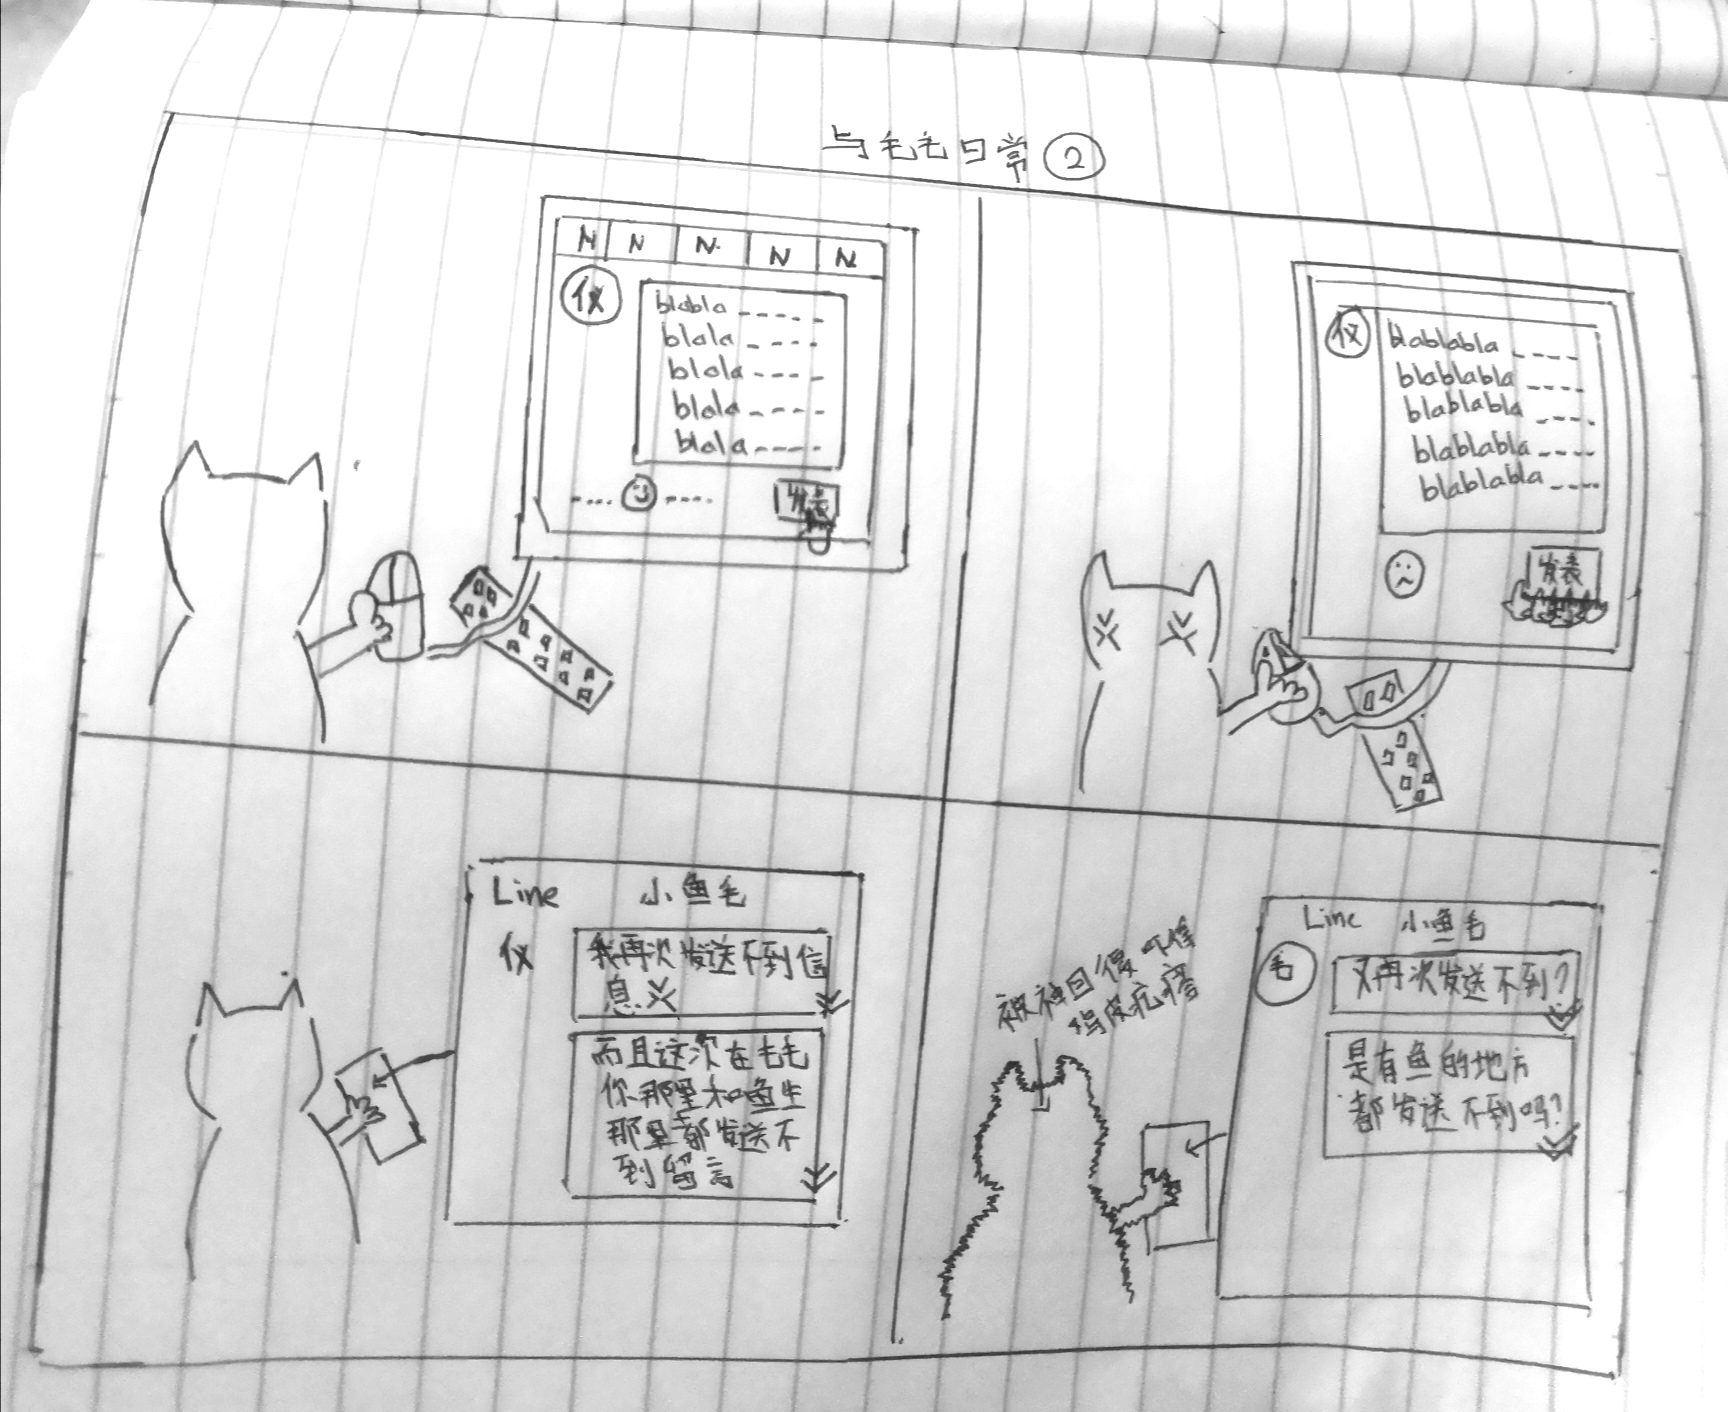 与毛毛日常②
N N N N N
仪
blabla -----
blala ----
blala ----
blala ----
blala ----
发表
仪
blablabla ----
blablabla ----
blablabla ----
blablabla ----
blablabla ----
发表
Line 小鱼毛
仪
我再次发送不到信
息
而且这次在毛毛
你那里和鱼生
那里都发送不
到留言
被神回復吓得
鸡皮疙瘩
Line 小鱼毛
毛
又再次发送不到？
是有鱼的地方
都发送不到吗？